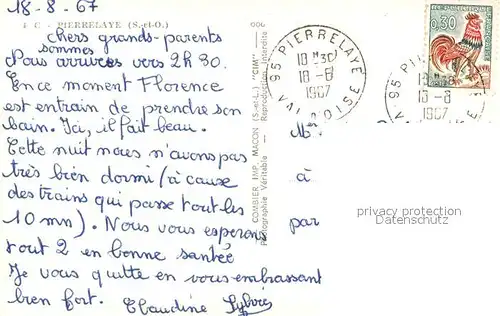 18-8-67
C - PIERRELAYE (S.-et-O.)
006
chers grands-parents
sommes
Nous arrivées vers 2h 30.
En ce moment Florence
est entrain de prendre son
bain. Ici, il fait beau.
Cette nuit nous n'avons pas
très bien dormi (à cause
des trains qui passe tout les
10 mn). Nous vous esperons
tout 2 en bonne santée
Je vous quitte en vous embrassant
bien fort. Claudine
COMBIER IMP. MACON (S.-et-L.) "CIM"
Photographie Véritable - Reproduction Interdite
95 PIERRELAYE
18 H30
18-8
1967
VAL D'OISE
95 PIERRELAYE
18-8
1967
VAL D'OISE
0,30
M.
à
par
privacy protection